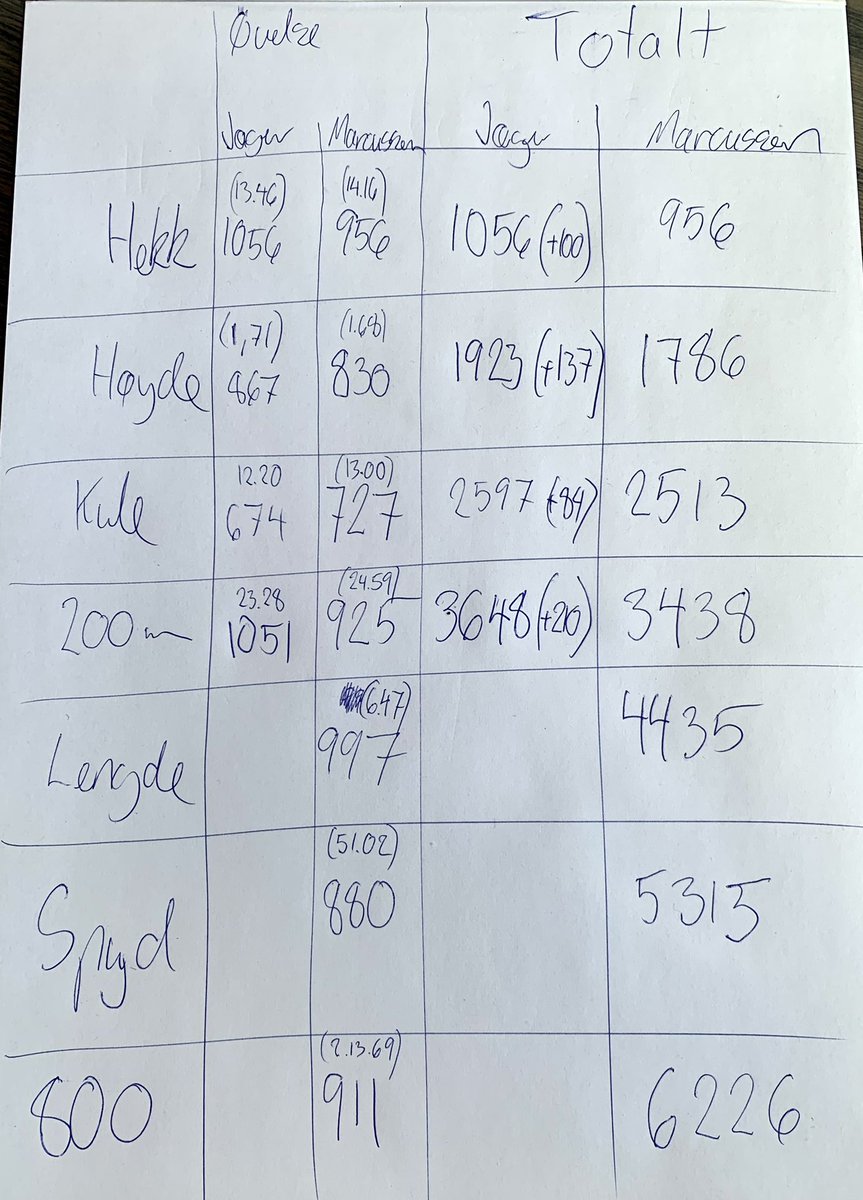 Øvelse Totalt
Jager Marcussen Jager Marcussen
(13.46) (14.16)
Hekk 1056 956 1056 (+100) 956
(1,71) (1.68)
Høyde 867 830 1923 (+137) 1786
12.20 (13.00)
Kule 674 727 2597 (+84) 2513
23.28 (24.59)
200m 1051 925 3648 (+210) 3438
(6.47)
Lengde 997 4435
(51.02)
Spyd 880 5315
(2.13.69)
800 911 6226